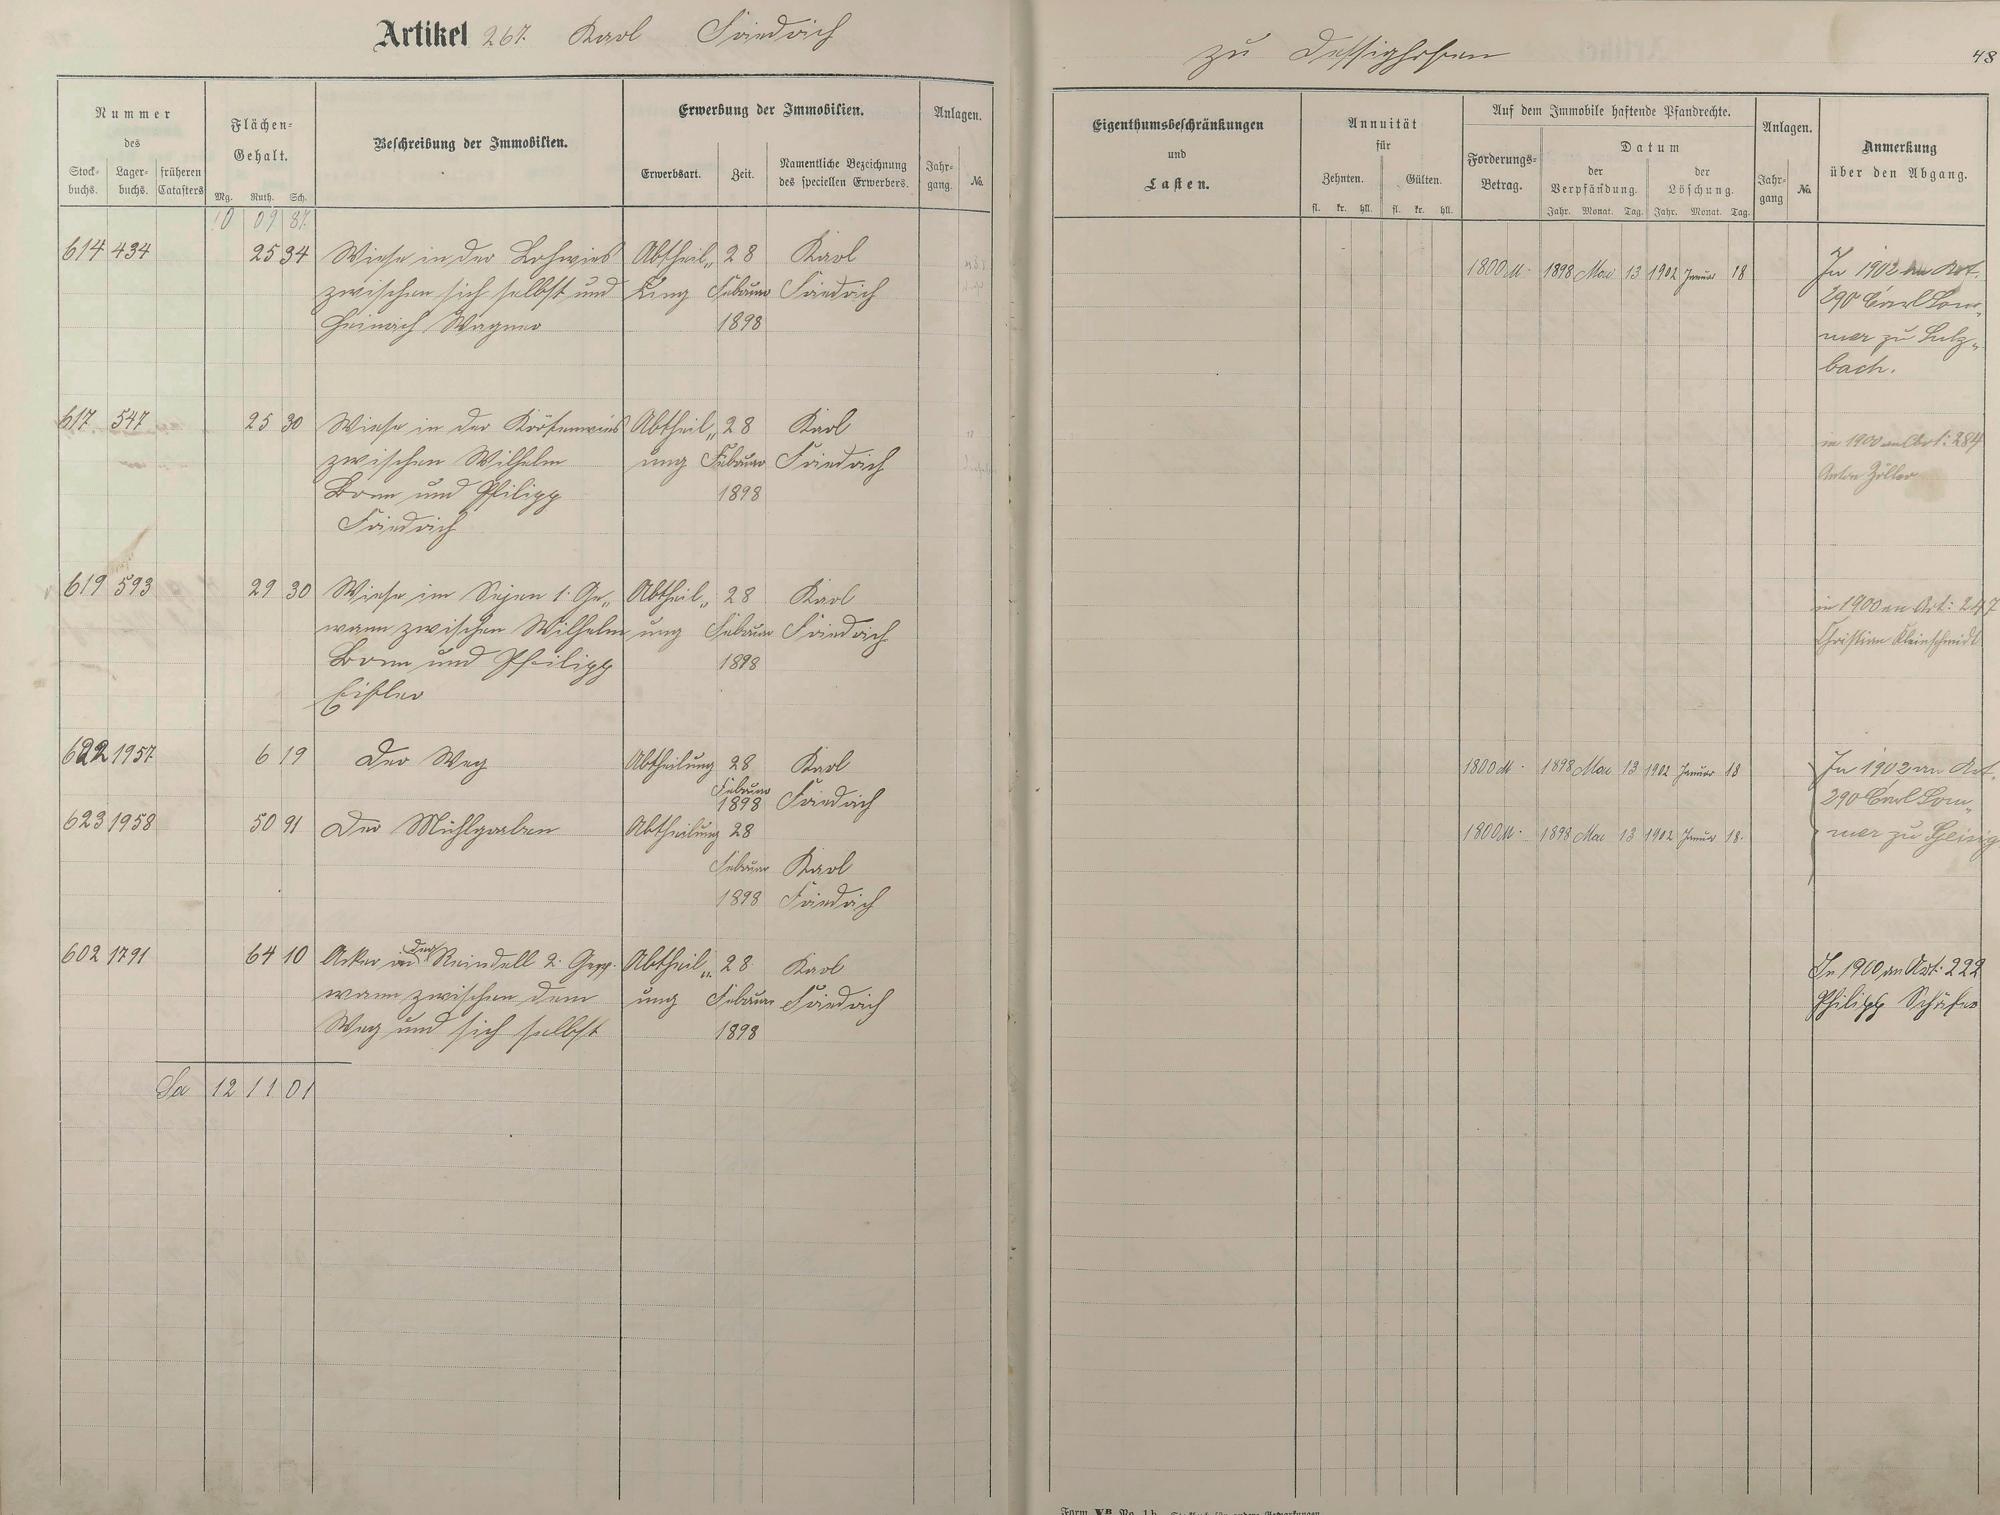 Artikel 267. Karl Friedrich
zu Dessighofen
48
Nummer des
Stock-buchs. Lager-buchs. früheren Catasters
Flächen-Gehalt.
Mg. Ruth. Sch.
Beschreibung der Immobilien.
Erwerbung der Immobilien.
Erwerbsart. Zeit. Namentliche Bezeichnung des speciellen Erwerbers.
Anlagen.
Jahr-gang. No.
Eigenthumsbeschränkungen
und
Lasten.
Annuität
für
Zehnten. Gülten.
fl. kr. hll. fl. kr. hll.
Auf dem Immobile haftende Pfandrechte.
Forderungs-Betrag.
Datum
der Verpfändung. der Löschung.
Jahr. Monat. Tag. Jahr. Monat. Tag.
Anlagen.
Jahr-gang No.
Anmerkung
über den Abgang.
10 09 87
614 434 25 34 Wiese in der Lohwies Abtheil„ 28 Karl
zwischen sich selbst und ung Februar Friedrich
Heinrich Wagner 1898
1800 M. 1898 Mai 13 1902 Januar 18
In 1902 an Art.
290 Carl Som„
mer zu Sulz„
bach.
617 547 25 30 Wiese in der Abtheil„ 28 Karl
zwischen Wilhelm ung Februar Friedrich
Bonn und Philipp 1898
Friedrich
in 1900 an Art: 284
Anton Zöller
619 593 29 30 Wiese im 1. Ge„ Abtheil„ 28 Karl
wann zwischen Wilhelm ung Februar Friedrich
Bonn und Philipp 1898
in 1900 an Art: 247
Christian Kleinschmidt
622 1957 6 19 Der Weg Abtheilung 28 Karl
Februar
1898 Friedrich
1800 M. 1898 Mai 13 1902 Januar 18
In 1902 an Art.
290 Carl Som„
mer zu Geisig
623 1958 50 91 Der Mühlgraben Abtheilung 28
Februar Karl
1898 Friedrich
1800 M. 1898 Mai 13 1902 Januar 18.
602 1791 64 10 Acker in der 2. Gew. Abtheil„ 28 Karl
wann zwischen dem ung Februar Friedrich
Weg und sich selbst 1898
In 1900 an Art: 222
Philipp Schäfer
Sa 12 11 01